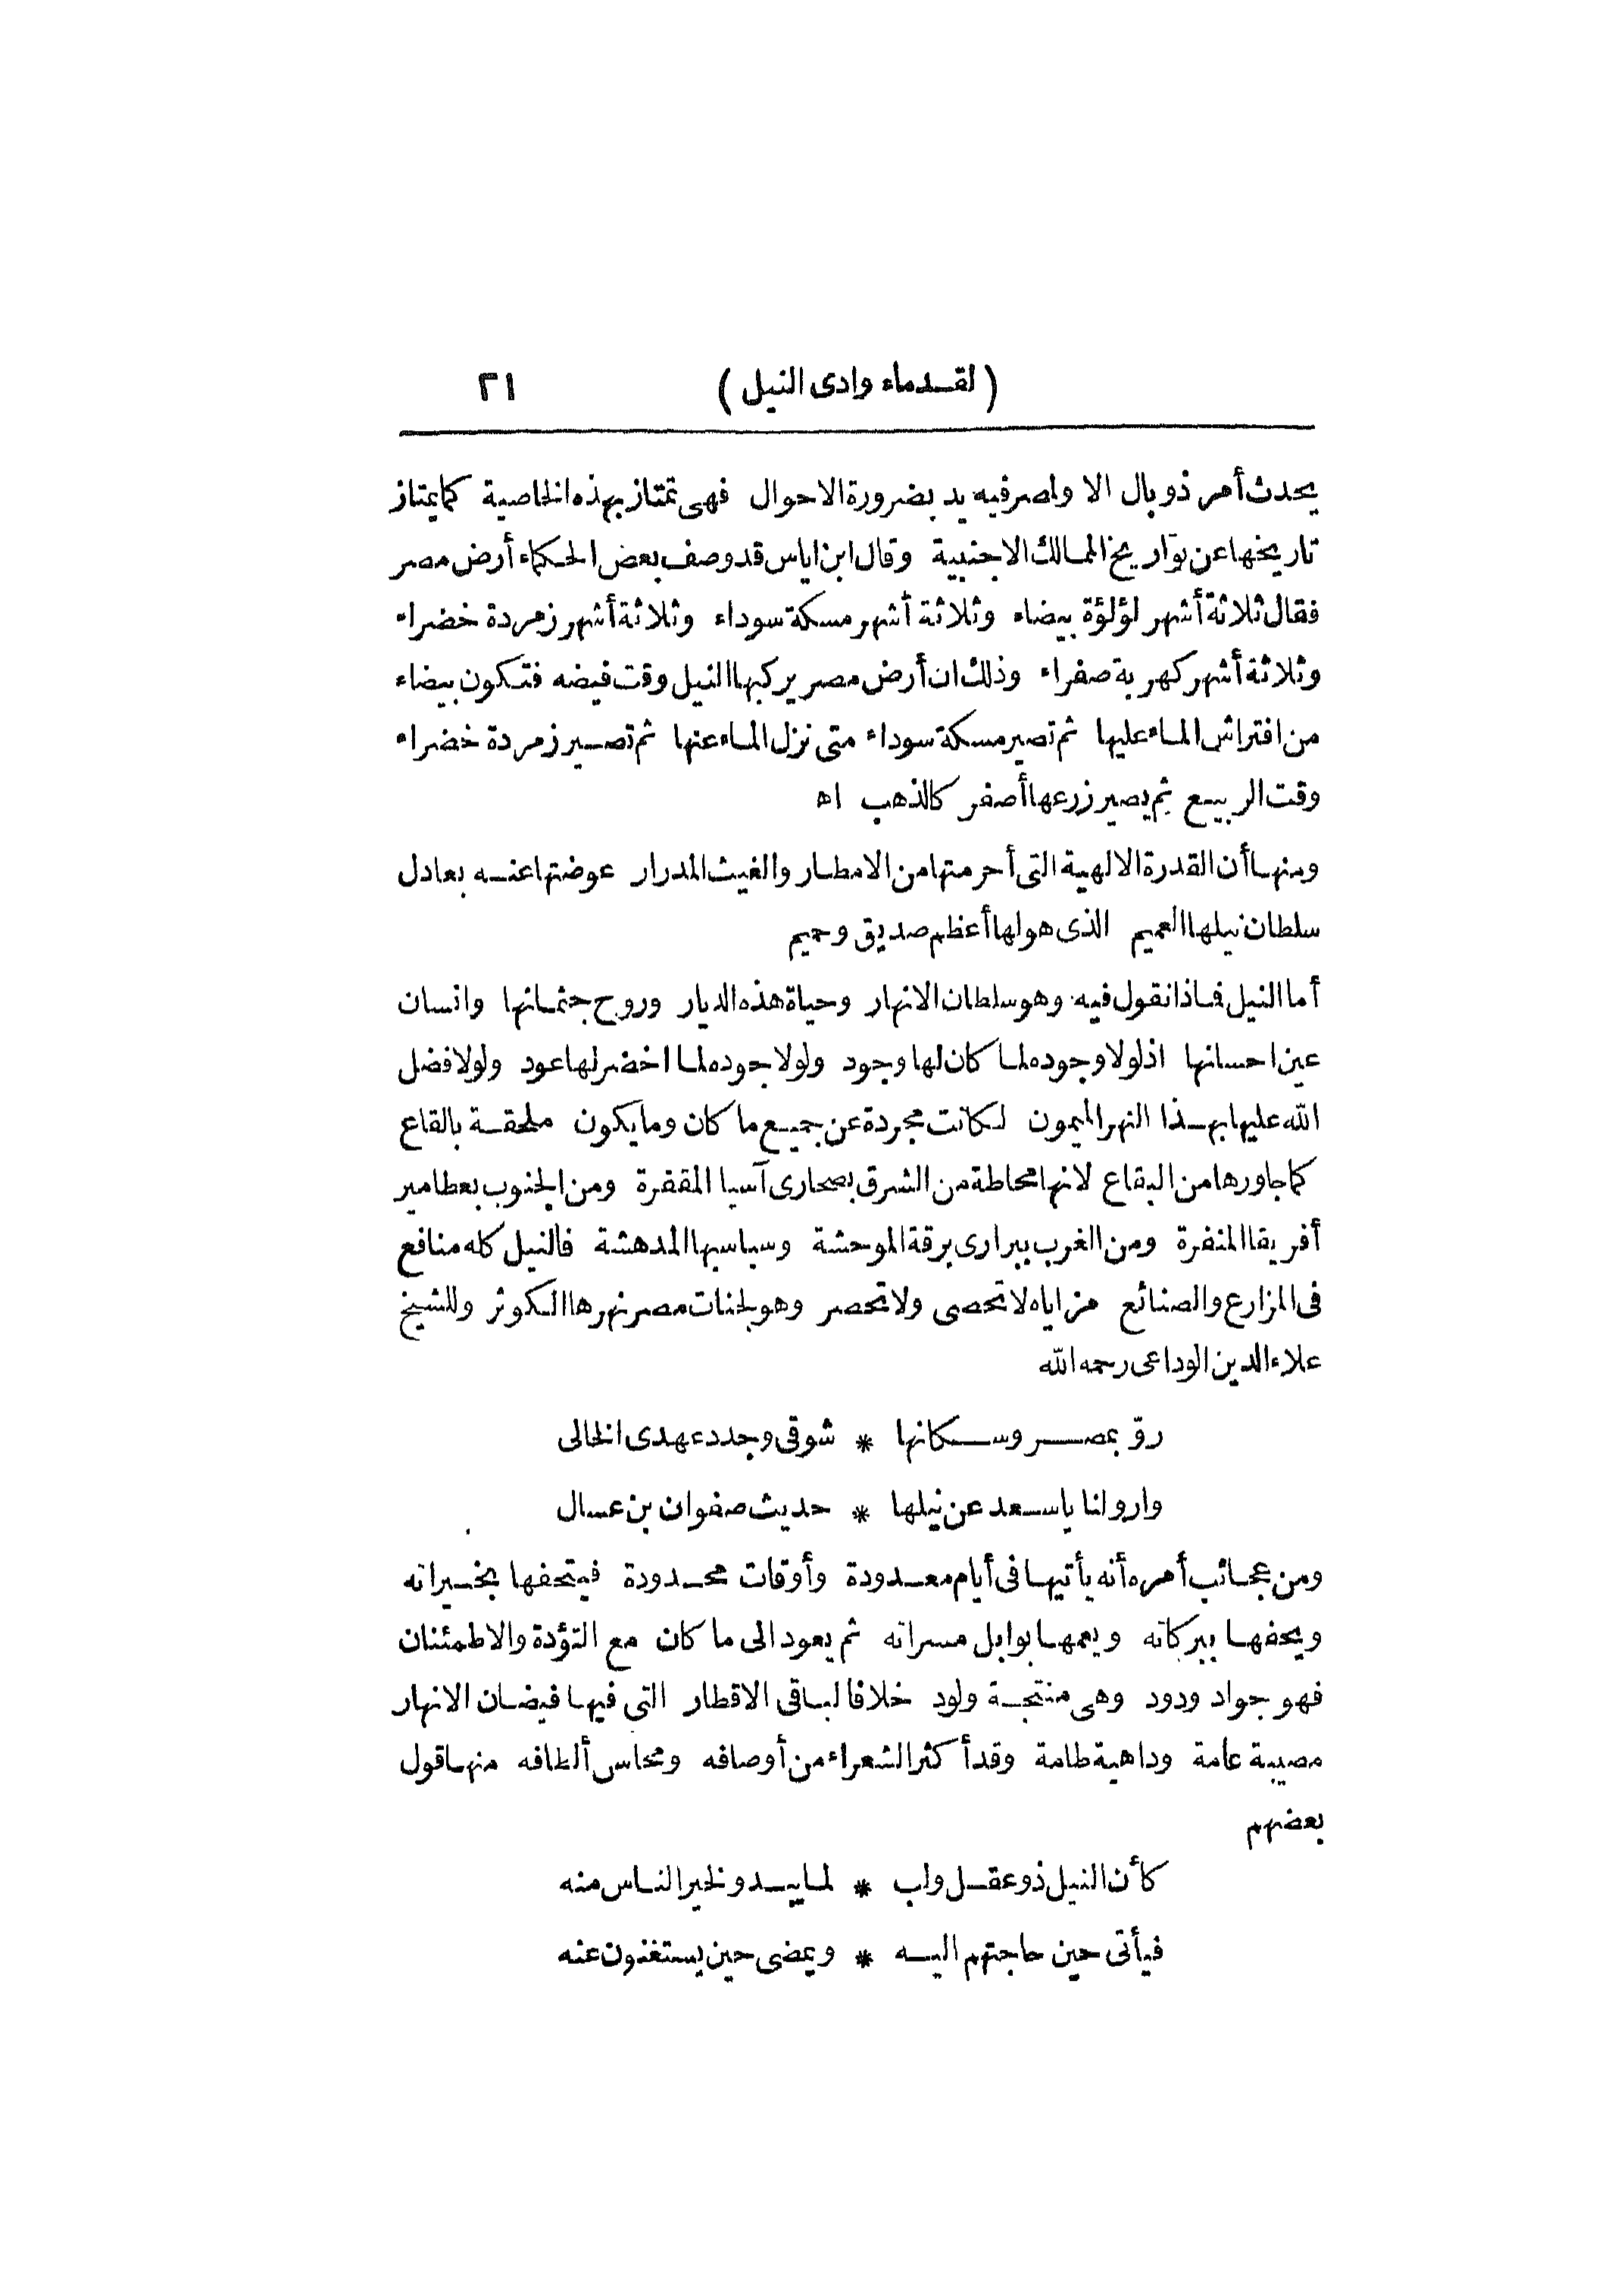 (لقدماء وادى النيل) ٢١
يحدث أمر ذو بال الا ولمصر فيه يد بضرورة الاحوال فهى تمتاز بهذه الخاصية كما يمتاز
تاريخها عن تواريخ الممالك الاجنبية وقال ابن اياس قد وصف بعض الحكماء أرض مصر
فقال ثلاثة أشهر لؤلؤة بيضاء وثلاثة أشهر مسكة سوداء وثلاثة أشهر زمردة خضراء
وثلاثة أشهر كهربة صفراء وذلك ان أرض مصر يركبها النيل وقت فيضه فتكون بيضاء
من افتراش الماء عليها ثم تصير مسكة سوداء متى نزل الماء عنها ثم تصير زمردة خضراء
وقت الربيع ثم يصير زرعها أصفر كالذهب اه
ومنها أن القدرة الالهية التى أحرمتها من الامطار والغيث المدرار عوضتها عنه بعادل
سلطان نيلها العميم الذى هو لها أعظم صديق وحميم
أما النيل فماذا نقول فيه وهو سلطان الانهار وحياة هذه الديار وروح جثمانها وانسان
عين احسانها اذ لولا وجوده لما كان لها وجود ولولا جوده لما اخضر لها عود ولولا فضل
الله عليها بهذا النهر الميمون لكانت مجردة عن جميع ما كان وما يكون ملحقة بالقاع
كما جاورها من البقاع لانها محاطة من الشرق بصحارى آسيا المقفرة ومن الجنوب بعطامير
أفريقا المنفرة ومن الغرب ببرارى برقة الموحشة وسباسبها المدهشة فالنيل كله منافع
فى المزارع والصنائع مزاياه لا تحصى ولا تحصر وهو لجنات مصر نهرها الكوثر وللشيخ
علاء الدين الوداعى رحمه الله
روّ بمصر وسكانها * شوقى وجدد عهدى الخالى
وارو لنا يا سعد عن نيلها * حديث صفوان بن عسال
ومن عجائب أمره أنه يأتيها فى أيام معدودة وأوقات محدودة فيتحفها بخيراته
ويحفها ببركاته ويعمها بوابل مسراته ثم يعود الى ما كان مع التؤدة والاطمئنان
فهو جواد ودود وهى منتجة ولود خلافا لباقى الاقطار التى فيها فيضان الانهار
مصيبة عامة وداهية طامة وقد أكثر الشعراء من أوصافه ومحاسن ألطافه منها قول
بعضهم
كأن النيل ذو عقل ولب * لما يبدو لخير الناس منه
فيأتى حين حاجتهم اليه * ويمضى حين يستغنون عنه